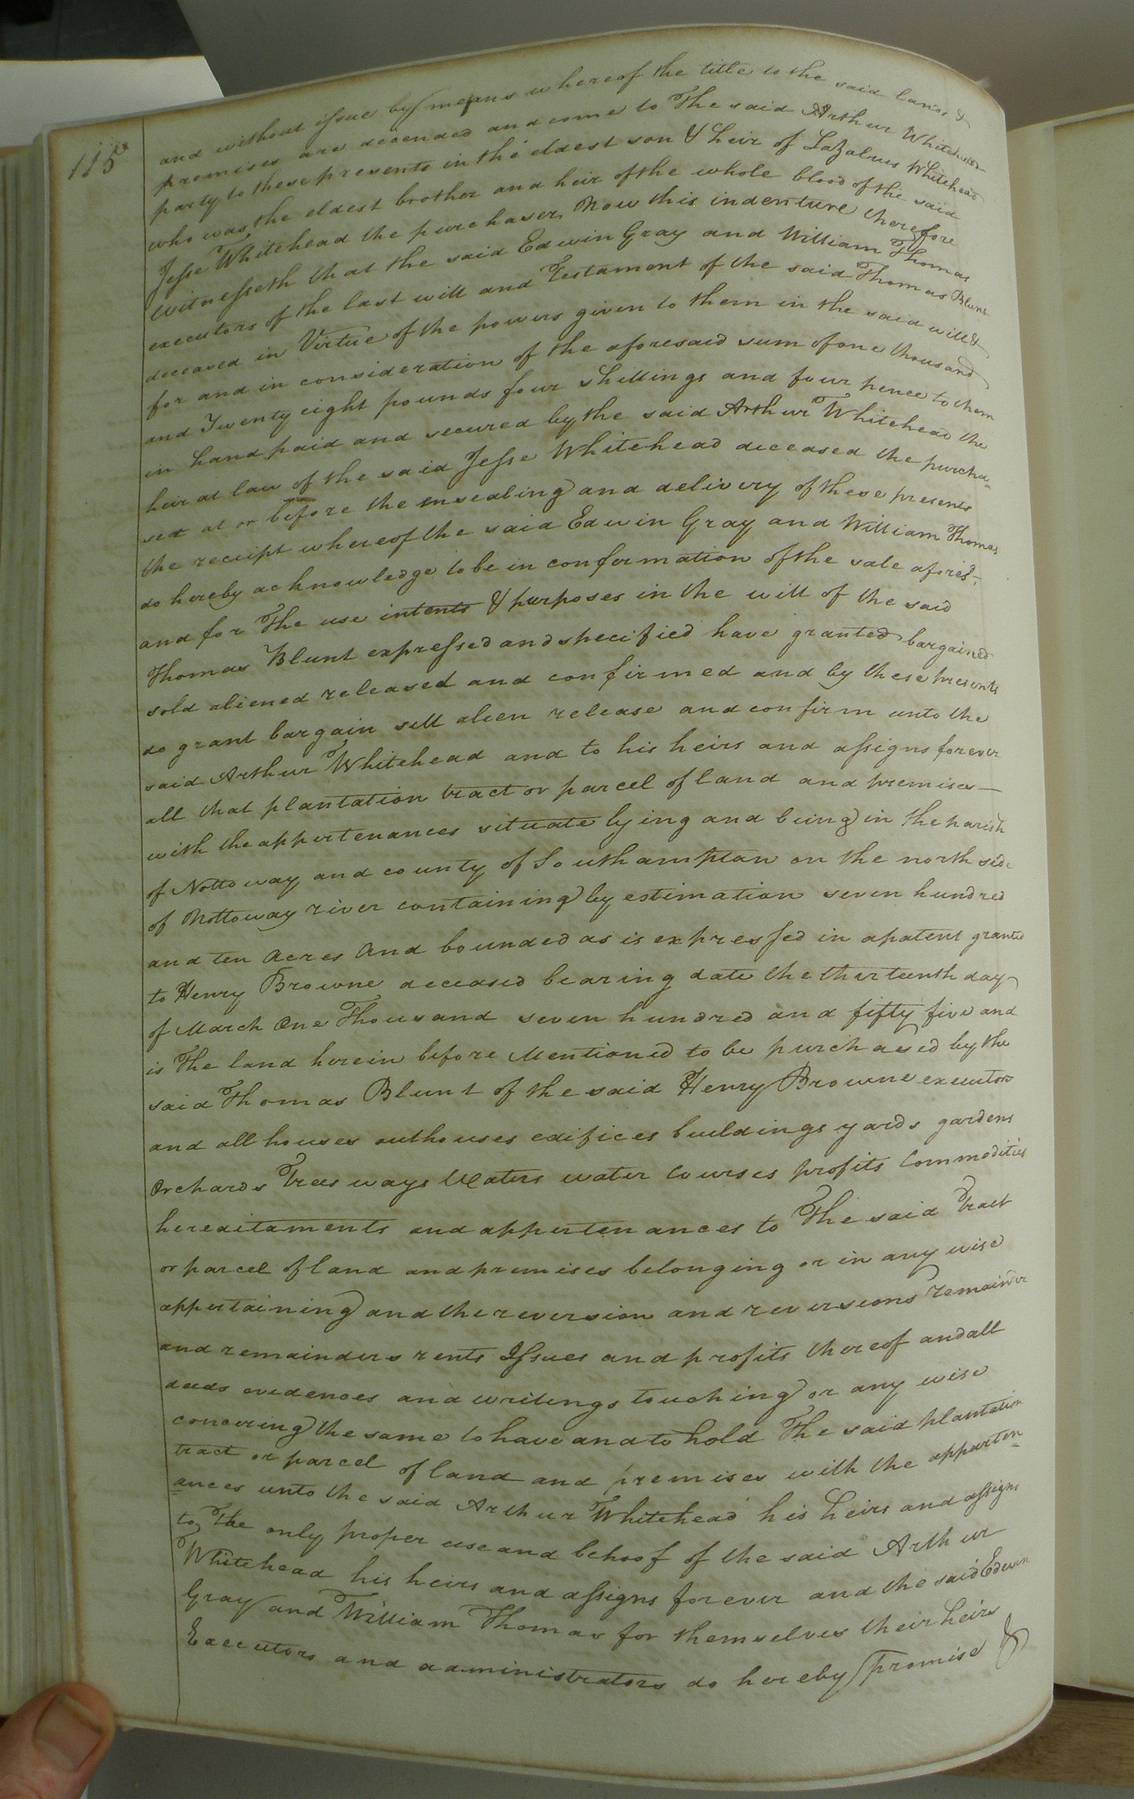 115
and without issue by means whereof the title to the said lands &
premises are decended and come to The said Arthur Whitehead
party to these presents in the eldest son & heir of Lazalrus Whitehead
who was the eldest brother and heir of the whole blood of the said
Jesse Whitehead the purchaser Now this indenture therefore
witnesseth that the said Edwin Gray and William Thomas
executors of the last will and Testament of the said Thomas Blunt
deceased in Virtue of the powers given to them in the said will &
for and in consideration of the aforesaid sum of one thousand
and Twenty eight pounds four shillings and four pence to them
in hand paid and secured by the said Arthur Whitehead the
heir at law of the said Jesse Whitehead deceased the purcha-
ser at or before the ensealing and delivery of these presents
the receipt whereof the said Edwin Gray and William Thomas
do hereby acknowledge to be in conformation of the sale aforesd.
and for The use intents & purposes in the will of the said
Thomas Blunt expressed and specified have granted bargained
sold aliened released and confirmed and by these presents
do grant bargain sell alien release and confirm unto the
said Arthur Whitehead and to his heirs and assigns forever
all that plantation tract or parcel of land and premises
with the appertenances situate lying and being in the parish
of Nottoway and county of Southampton on the north side
of Nottoway river containing by estimation seven hundred
and ten acres And bounded as is expressed in a patent granted
to Henry Browne deceased bearing date the thirteenth day
of March One Thousand seven hundred and fifty five and
is The land herein before Mentioned to be purchased by the
said Thomas Blunt of the said Henry Browne executors
and all houses outhouses edifices buildings yards gardens
Orchards Trees ways Waters water Courses profits Commodities
hereditaments and appertenances to The said Tract
or parcel of land and premises belonging or in any wise
appertaining and the reversion and reversions remainder
and remainders rents Issues and profits thereof and all
deeds evidences and writings touching or any wise
concering the same to have and to hold The said plantation
tract or parcel of land and premises with the apperten-
ances unto the said Arthur Whitehead his heirs and assigns
to The only proper use and behoof of the said Arthur
Whitehead his heirs and assigns forever and the said Edwin
Gray and William Thomas for themselves their heirs
Executors and administrators do hereby promise &